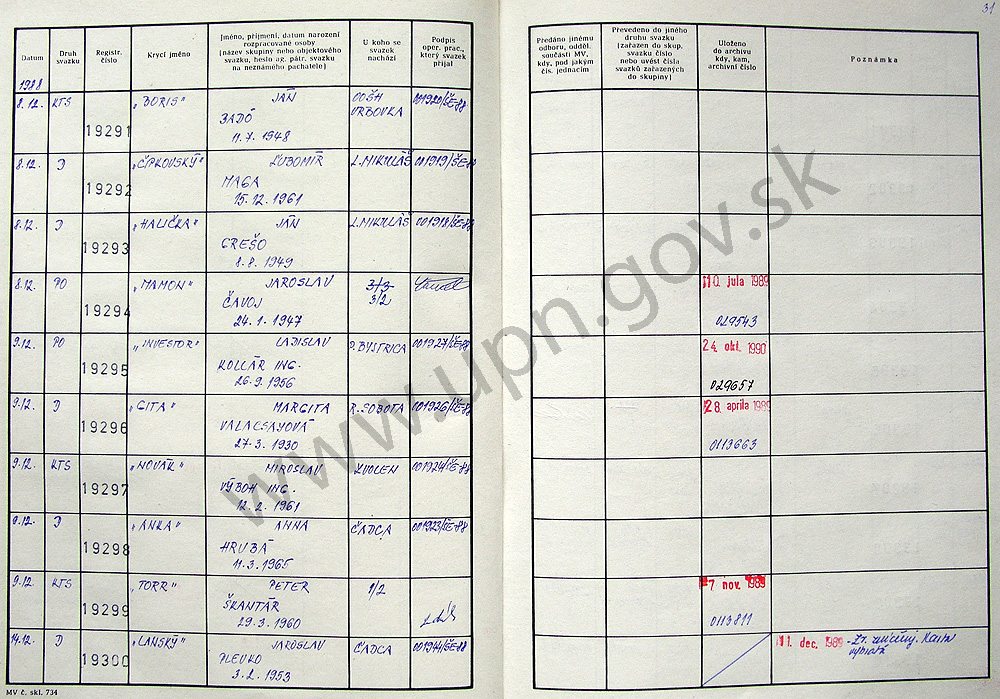 31
Datum
Druh svazku
Registr. číslo
Krycí jméno
Jméno, příjmení, datum narození rozpracované osoby (název skupiny nebo objektového svazku, heslo ag. pátr. svazku na neznámého pachatele)
U koho se svazek nachází
Podpis oper. prac., který svazek přijal
Předáno jinému odboru, odděl. součásti MV, kdy, pod jakým čís. jednacím
Převedeno do jiného druhu svazku (zařazen do skup. svazku číslo nebo uvést čísla svazků zařazených do skupiny)
Uloženo do archivu kdy, kam, archivní číslo
Poznámka
1988
8.12. KTS 19291 „BORIS" JÁN BADÓ 11.7.1948 OOŠH VRBOVKA 001920/ŠE-88
8.12. D 19292 „ČIPKOVSKÝ" ĽUBOMÍR MAGA 15.12.1961 L.MIKULÁŠ 001919/ŠE-88
8.12. D 19293 „HALIČKA" JÁN GREŠO 8.8.1949 L.MIKULÁŠ 001918/ŠE-88
8.12. PO 19294 „MAMON" JAROSLAV ČAVOJ 24.1.1947 3/3 3/2 10. júla 1989 029543
9.12. PO 19295 „INVESTOR" LADISLAV KOLLÁR ING. 26.9.1956 P.BYSTRICA 001927/ŠE-88 24. okt. 1990 029657
9.12. D 19296 „GITA" MARGITA VALACSAYOVÁ 27.3.1930 R.SOBOTA 001926/ŠE-88 28. apríla 1989 0113663
9.12. KTS 19297 „NOVÁK" MIROSLAV VÝBOH ING. 12.2.1961 ZVOLEN 001924/ŠE-88
9.12. D 19298 „ANKA" ANNA HRUBÁ 11.3.1965 ČADCA 001923/ŠE-88
9.12. KTS 19299 „TORR" PETER ŠKANTÁR 29.3.1960 1/2 7 nov. 1989 0113811
14.12. D 19300 „LANSKÝ" JAROSLAV PLEVKO 3.2.1953 ČADCA 001944/ŠE-88 11. dec. 1989 - Zv. zničený. Karta vybratá
MV č. skl. 734
www.upn.gov.sk